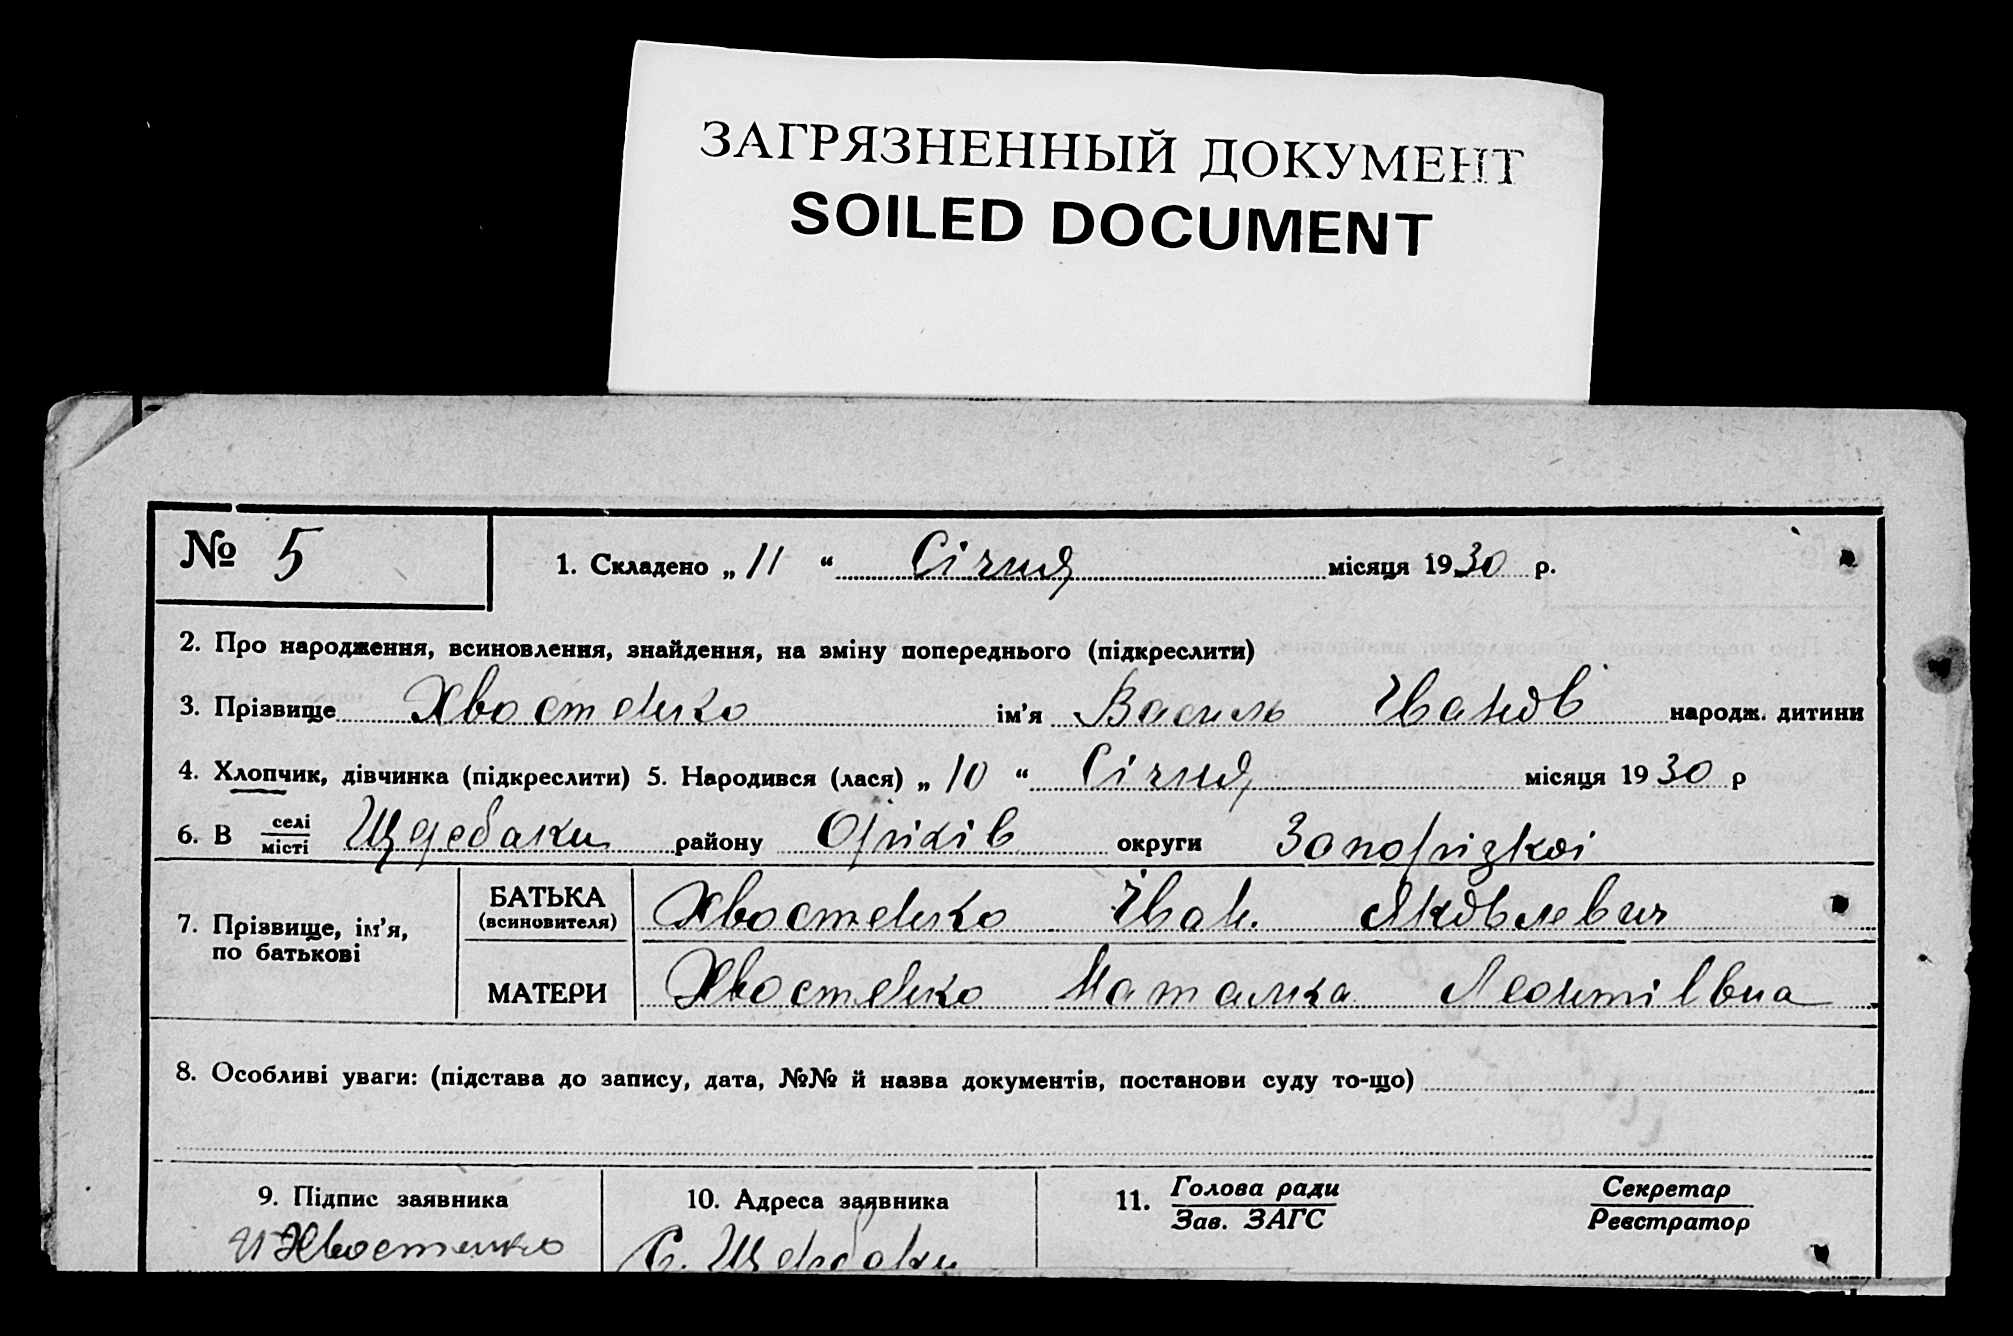 ЗАГРЯЗНЕННЫЙ ДОКУМЕНТ
SOILED DOCUMENT
№ 5
1. Складено „ 11 “ Січня місяця 1930 р.
2. Про народження, всиновлення, знайдення, на зміну попереднього (підкреслити)
3. Прізвище Хвостенко ім'я Василь Іванов народж. дитини
4. Хлопчик, дівчинка (підкреслити) 5. Народився (лася) „ 10 “ Січня місяця 1930 р
6. В селі
місті Щербаки району Оріхів округи Запорізкоі
7. Прізвище, ім'я,
по батькові
БАТЬКА
(всиновителя)
Хвостенко Іван. Яковлевич
МАТЕРИ Хвостенко Наталка Леонтіівна
8. Особливі уваги: (підстава до запису, дата, №№ й назва документів, постанови суду то-що)
9. Підпис заявника
И Хвостенко
10. Адреса заявника
С. Щербаки
11. Голова ради
Зав. ЗАГС
Секретар
Реєстратор